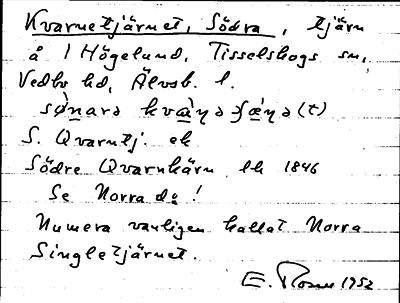 Kvarnetjärnet, Södra, tjärn
å 1 Högelund, Tisselskogs sn,
Vedbo hd, Älvsb. l.
S. Qvarntj. ek
Södre Qvarnkärn lk 1846
Se Norra do!
Numera vanligen kallat Norra
Singletjärnet.
E. 1952